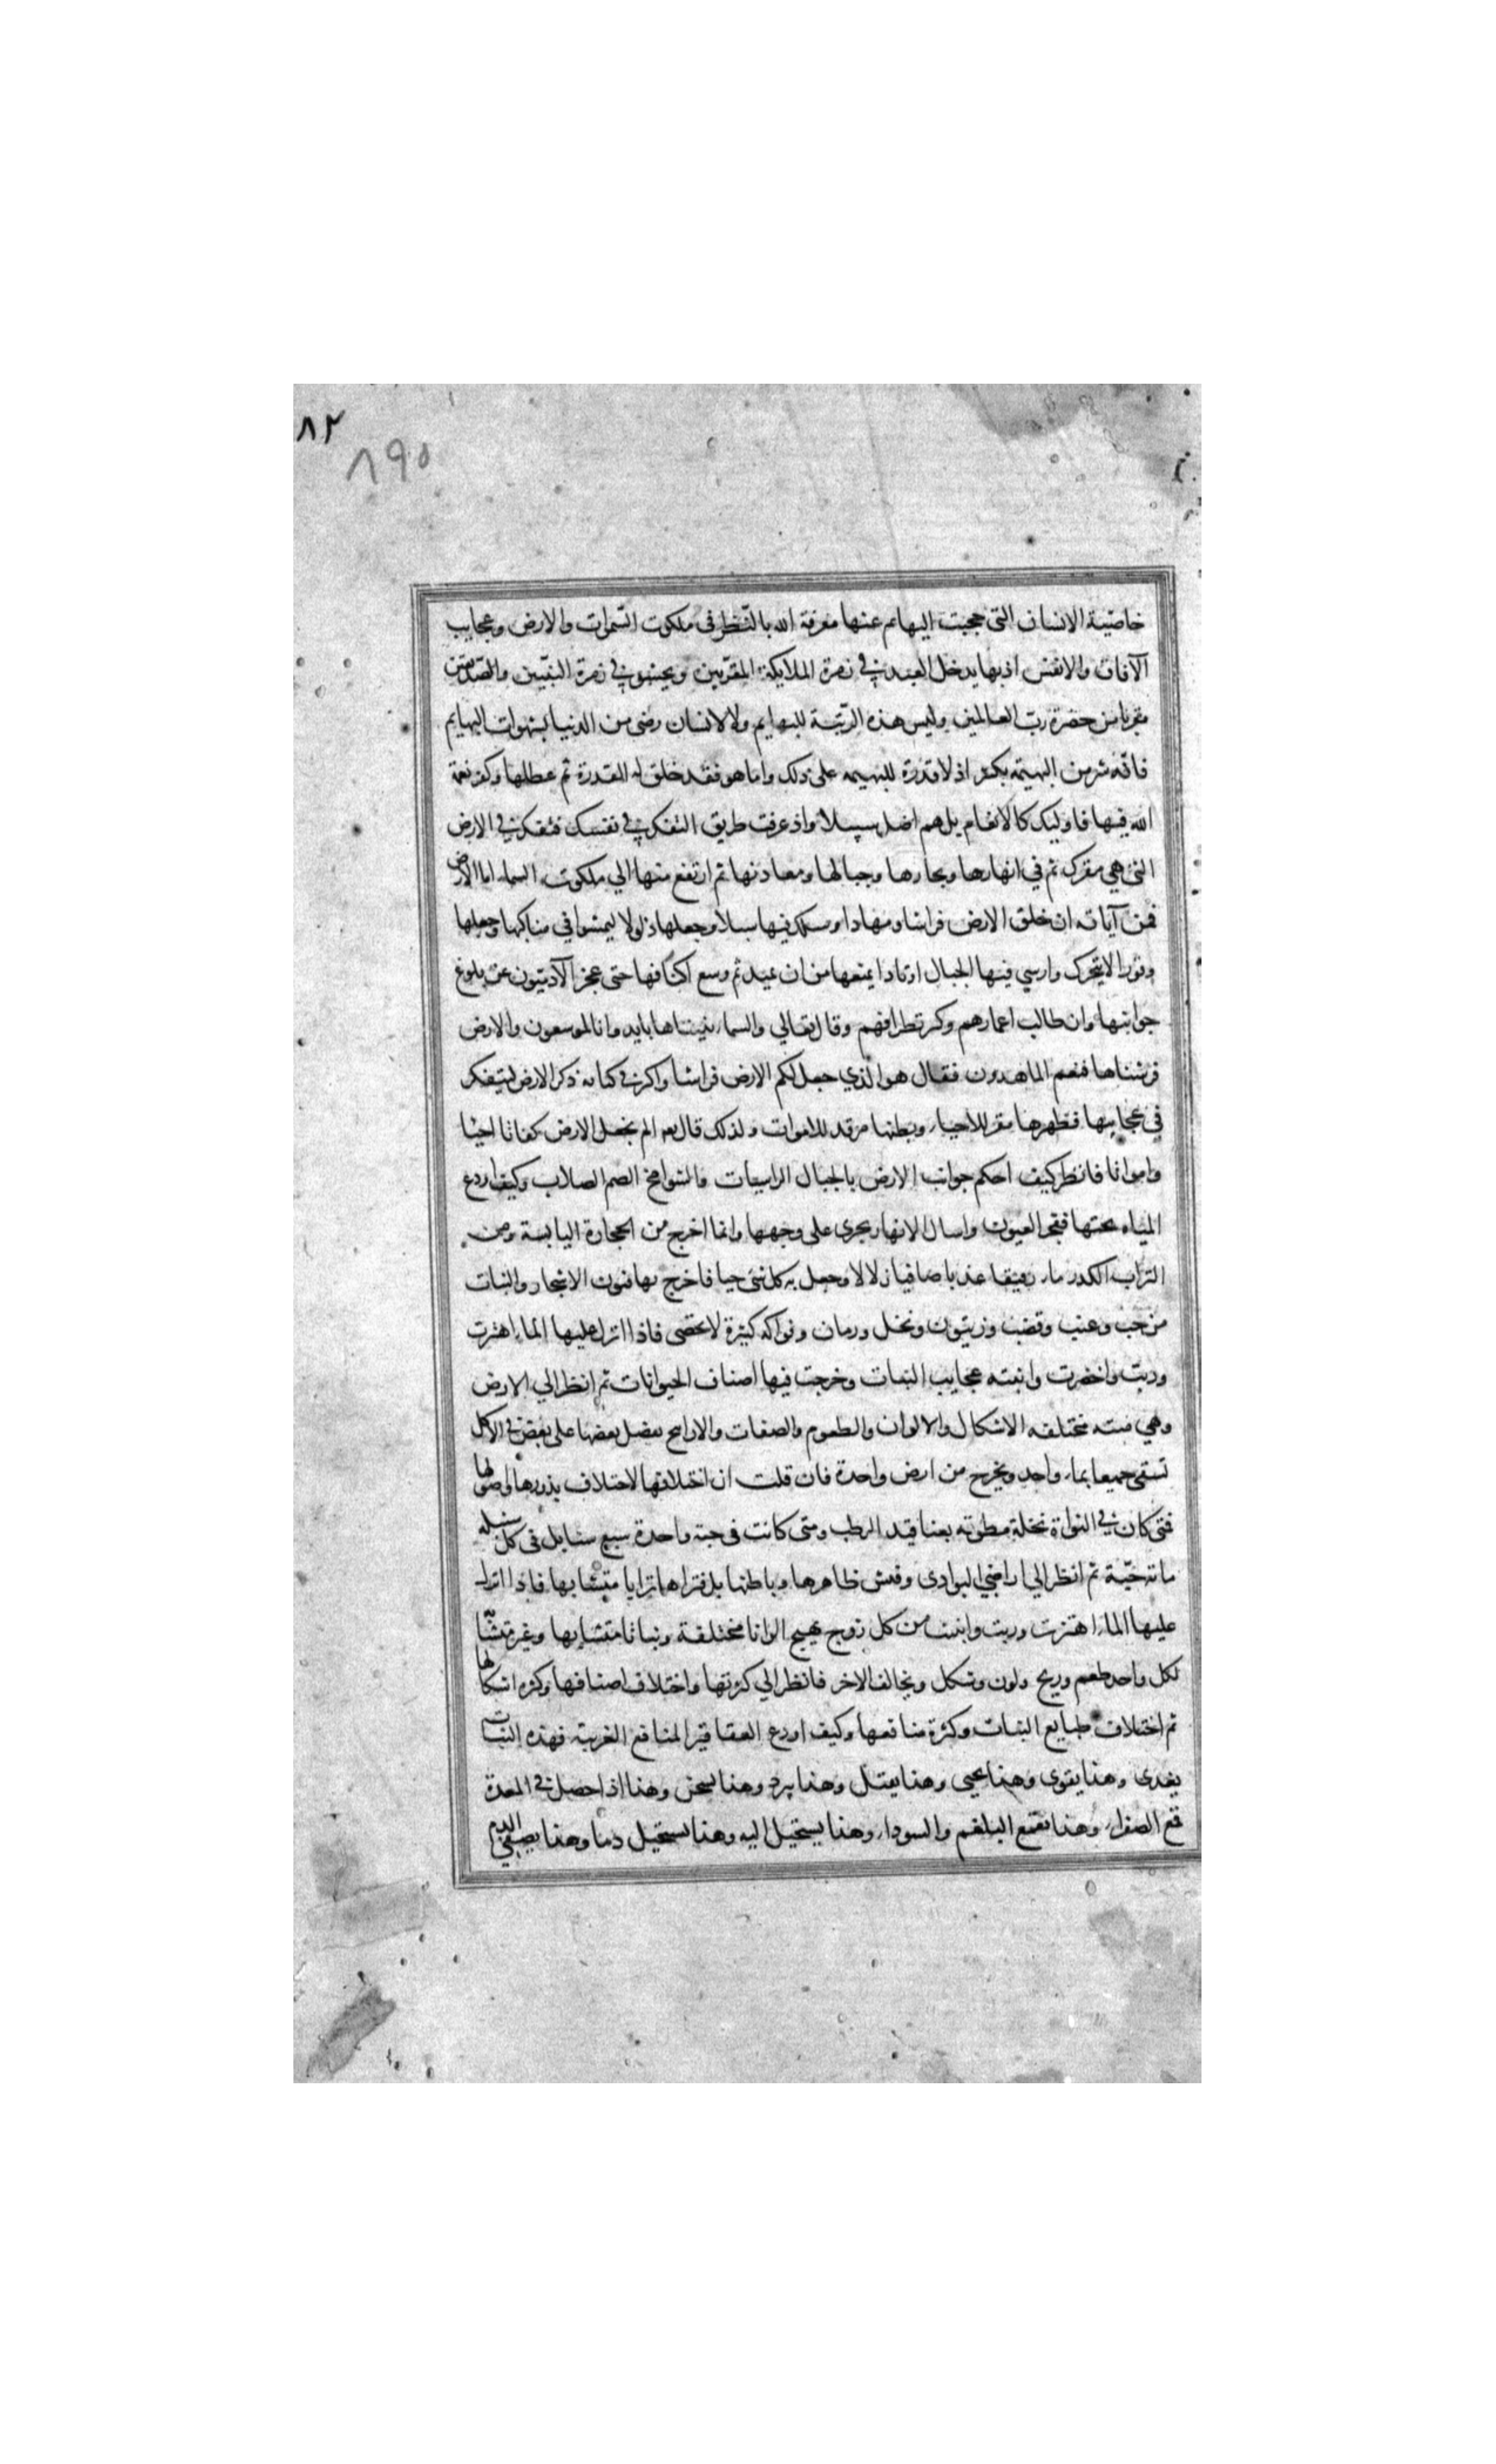 ٨٢
٨٩٥
خاصيّة الانسان التى حجبت البهايم عنها معرفة الله بالنّظر فى ملكوت السّموات والارض وعجايب
الآفاق والانفس اذ بها يدخل العبد فى زمرة الملايكة المقرّبين ويحشر فى زمرة النبيّين والصّديقين
مقربا من حضرة ربّ العالمين وليس هذه الرتبة للبهايم ولا لانسان رضى من الدنيا بشهوات البهايم
فانّه شر من البهيمة بكثير اذ لا قدرة للبهيمه على ذلك واما هو فقد خلق له القدرة ثم عطلها وكفر نعمة
الله فيها فاوليك كالانعام بل هم اضل سبيلا واذ عرفت طريق التفكر فى نفسك فتفكر فى الارض
التى هي مقرك ثم في انهارها وبحارها وجبالها ومعادنها ثم ارتفع منها الي ملكوت السماء اما الارض
فمن آياته ان خلق الارض فراشا ومهادا وسلك فيها سبلا وجعلها ذلولا ليمشوا في مناكبها وجعلها
وقورا لا يتحرك وارسي فيها الجبال اوتادا يمنعها من ان تميد ثم وسع اكنافها حتى عجز الآدميّون عن بلوغ
جوانبها وان طالب اعمارهم وكثر تطرافهم وقال تعالي والسماء بنيناها بايد وانا لموسعون والارض
فرشناها فنعم الماهدون فقال هو الذي جعل لكم الارض فراشا واكثر فى كتابه ذكر الارض ليتفكر
في عجايبها فظهرها مقر للاحياء وبطنها مرقد للاموات ولذلك قال تعه الم نجعل الارض كفاتا احيا
وامواتا فانظر كيف احكم جوانب الارض بالجبال الراسيات والشوامخ الصم الصلاب وكيف اودع
المياه تحتها ففجر العيون واسال الانهار يجرى على وجهها وانما اخرج من الحجارة اليابسة ومن
التراب الكدر ماء رقيقا عذبا صافيا زلالا وجعل به كل شى حيا فاخرج بها فنون الاشجار والنبات
من حب وعنب وقضب وزيتون ونخل ورمان وفواكه كثيرة لا تحصى فاذا انزل عليها الماء اهتزت
وربت واخضرت وانبته عجايب النبات وخرجت فيها اصناف الحيوانات ثم انظر الي الارض
وهي ميته مختلفه الاشكال والالوان والطعوم والصفات والاراييح يفضل بعضها على بعض فى الاكل
تسقى جميعا بماء واحد ويخرج من ارض واحدة فان قلت ان اختلافها لاختلاف بذورها واصولها
فمتى كان فى النواة نخلة مطوقه بعناقيد الرطب ومتى كانت فى حبة واحدة سبع سنابل فى كل سنبله
مائة حبّة ثم انظر الي اراضي البوادى وفتش ظاهرها وباطنها بل فتراها ترابا متشابها فاذا انزل
عليها الماء اهتزت وربت وانبتت من كل زوج بهيج الوانا مختلفة ونباتا متشابها وغير متشابه
لكل واحد طعم وريح ولون وشكل ويخالف الاخر فانظر الي كثرتها واختلاف اصنافها وكثرة اشكالها
ثم اختلاف طبايع النبات وكثرة منافعها وكيف اودع العقاقير المنافع الغريبة فهذه النبات
يغدى وهذا يقوى وهذا يحيى وهذا يقتل وهذا يبرد وهذا يسخن وهذا اذا حصل فى المعدة
قمع الصفراء وهذا يقمع البلغم والسوداء وهذا يستحيل اليه وهذا يستحيل دما وهذا يصفي الدم